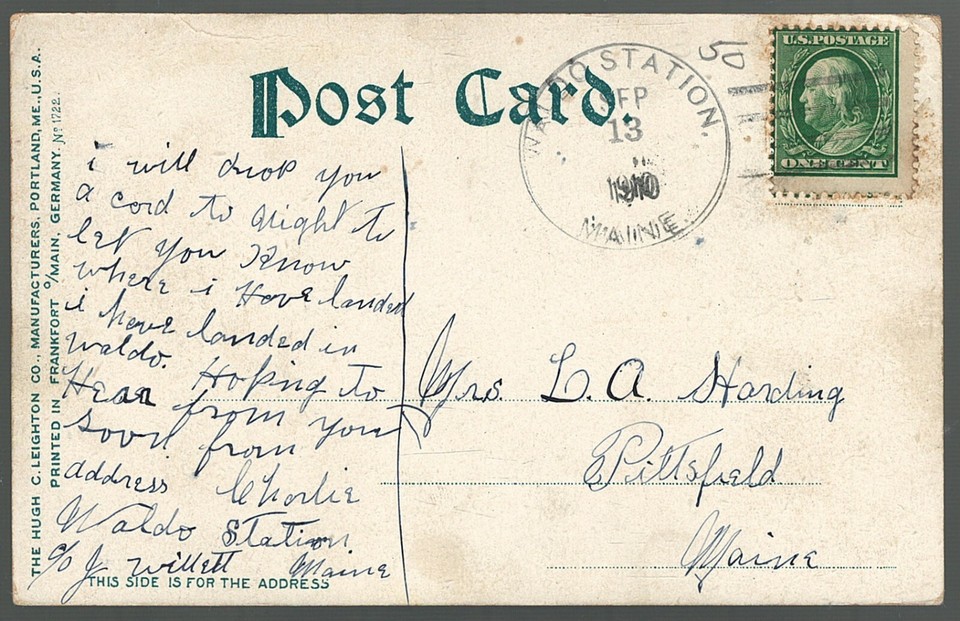 THE HUGH C. LEIGHTON CO., MANUFACTURERS, PORTLAND, ME., U.S.A.
PRINTED IN FRANKFORT o/MAIN, GERMANY. No 1722.
Post Card.
WALDO STATION.
SEP
13
1910
MAINE
50
U.S. POSTAGE
ONE CENT
i will drop you
a cord to night to
let you Know
where i Have landed
i have landed in
waldo.
Hoping to
Hear from you
soon from
address Chorlie
Waldo Station
c/o J. Willett Maine
Mrs. L. A. Harding
Pittsfield
Maine
THIS SIDE IS FOR THE ADDRESS